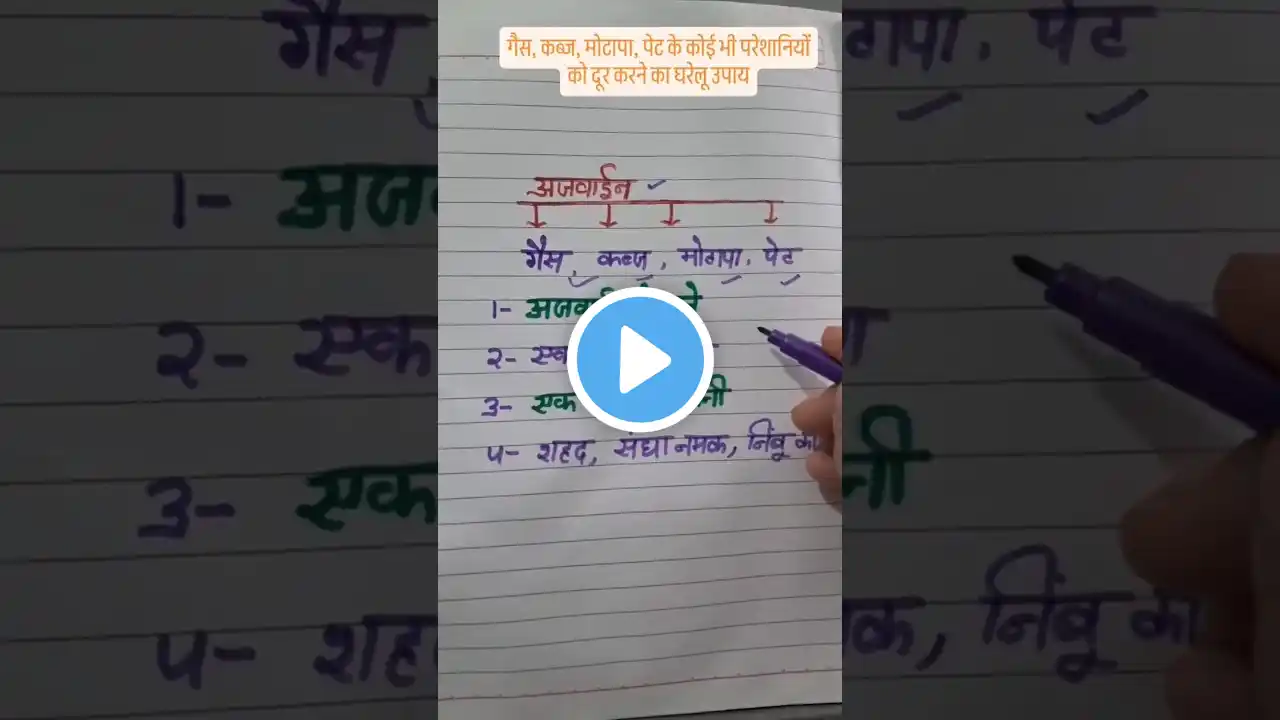 गैस, कब्ज, मोटापा, पेट के कोई भी परेशानियों
को दूर करने का घरेलू उपाय
अजवाईन
गैस, कब्ज, मोटापा, पेट
1- अजवा
२- एक
3- एक नी
५- शहद, संघा नमक, निंबू का